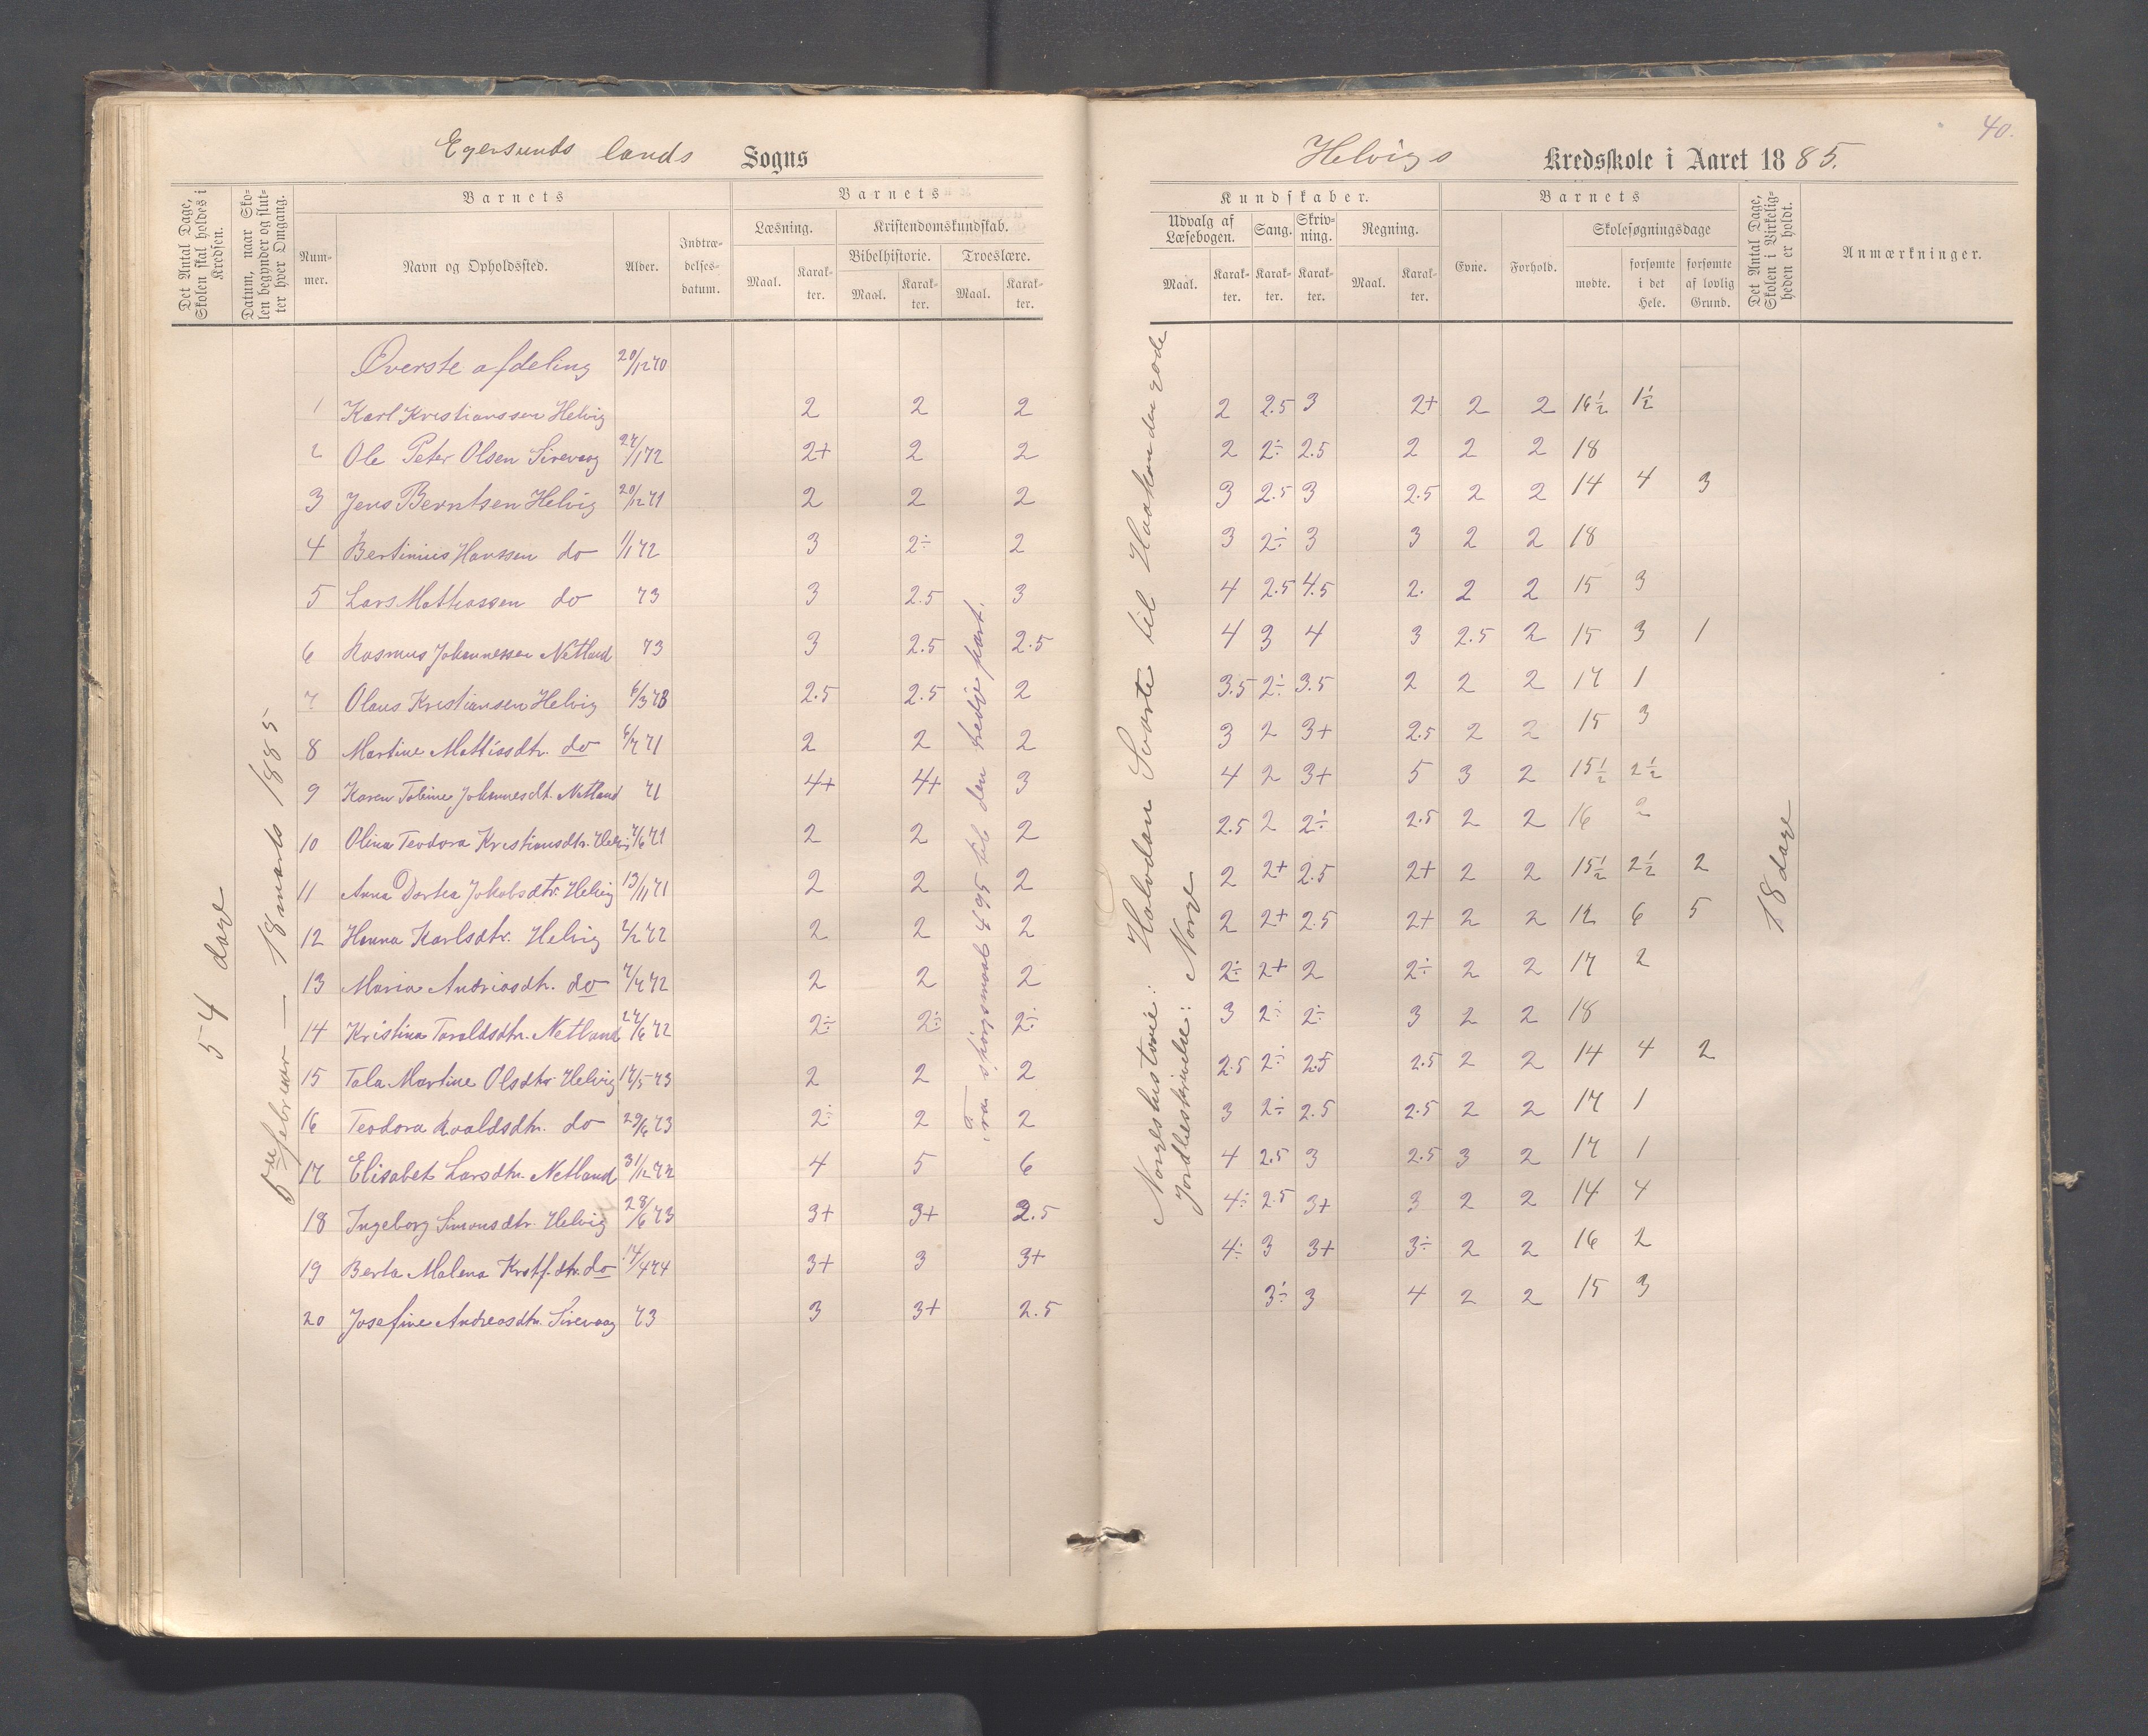 40.
Egersunds lands Sogns
Helvigs Kredsskole i Aaret 1885.
Det Antal Dage, Skolen skal holdes i Kredsen.
Datum, naar Skolen begynder og slutter hver Omgang.
Barnets
Nummer.
Navn og Opholdssted.
Alder.
Indtrædelsesdatum.
Barnets
Læsning.
Kristendomskundskab.
Bibelhistorie.
Troeslære.
Maal. Karakter. Maal. Karakter. Maal. Karakter.
Kundskaber.
Udvalg af Læsebogen.
Sang.
Skrivning.
Regning.
Maal. Karakter. Karakter. Karakter. Maal. Karakter.
Barnets
Evne. Forhold.
Skolesøgningsdage
mødte. forsømte i det Hele. forsømte af lovlig Grund.
Det Antal Dage, Skolen i Virkeligheden er holdt.
Anmærkninger.
54 dage
5te februar — 18 marts 1885
Fra spörgsmaal 495 til den tredje part.
Norgeshistorie: Halvdan Svarte til Haakon den gode
Jordbeskrivelse: Norge
18 dage
Øverste afdeling 20/12 70
1 Karl Kristianssen Helvig 2 2 2 2 2.5 3 2+ 2 2 16½ 1½
2 Ole Peter Olsen Sirevaag 27/1 72 2+ 2 2 2 2÷ 2.5 2 2 2 18
3 Jens Berntsen Helvig 20/12 71 2 2 2 3 2.5 3 2.5 2 2 14 4 3
4 Bertinius Hanssen do 1/1 72 3 2÷ 2 3 2÷ 3 3 2 2 18
5 Lars Mathiassen do 73 3 2.5 3 4 2.5 4.5 2. 2 2 15 3
6 Rasmus Johannessen Netland 73 3 2.5 2.5 4 3 4 3 2.5 2 15 3 1
7 Olaus Kristiansen Helvig 6/3 73 2.5 2.5 2 3.5 2÷ 3.5 2 2 2 17 1
8 Martine Mattiasdtr. do 6/7 71 2 2 2 3 2 3+ 2.5 2 2 15 3
9 Karen Tobine Johannesdt. Netland 71 4+ 4+ 3 4 2 3+ 5 3 2 15½ 2½
10 Olina Teodora Kristiansdtr. Helvig 7/6 71 2 2 2 2.5 2 2÷ 2.5 2 2 16 2
11 Anna Dortea Jakobsdtr. Helvig 13/11 71 2 2 2 2 2+ 2.5 2+ 2 2 15½ 2½ 2
12 Hanna Karlsdtr. Helvig 2/2 72 2 2 2 2 2+ 2.5 2+ 2 2 12 6 5
13 Maria Andriasdtr. do 7/7 72 2 2 2 2÷ 2+ 2 2÷ 2 2 17 2
14 Kristina Taraldsdtr. Netland 27/6 72 2÷ 2÷ 2÷ 3 2÷ 2÷ 3 2 2 18
15 Tala Martine Olsdtr Helvig 17/5 73 2 2 2 2.5 2÷ 2.5 2.5 2 2 14 4 2
16 Teodora Roaldsdtr. do 29/6 73 2÷ 2 2 3 2÷ 2.5 2.5 2 2 17 1
17 Elisabet Larsdtr. Netland 31/12 72 4 5 6 4 2.5 3 2.5 3 2 17 1
18 Ingeborg Simonsdtr. Helvig 28/6 73 3+ 3+ 2.5 4÷ 2.5 3+ 3 2 2 14 4
19 Berta Malena Krstf. dtr. do 17/4 74 3+ 3 3+ 4÷ 3 3+ 3÷ 2 2 16 2
20 Josefine Andreasdtr. Sirevaag 73 3 3+ 2.5 3÷ 3 4 2 2 15 3